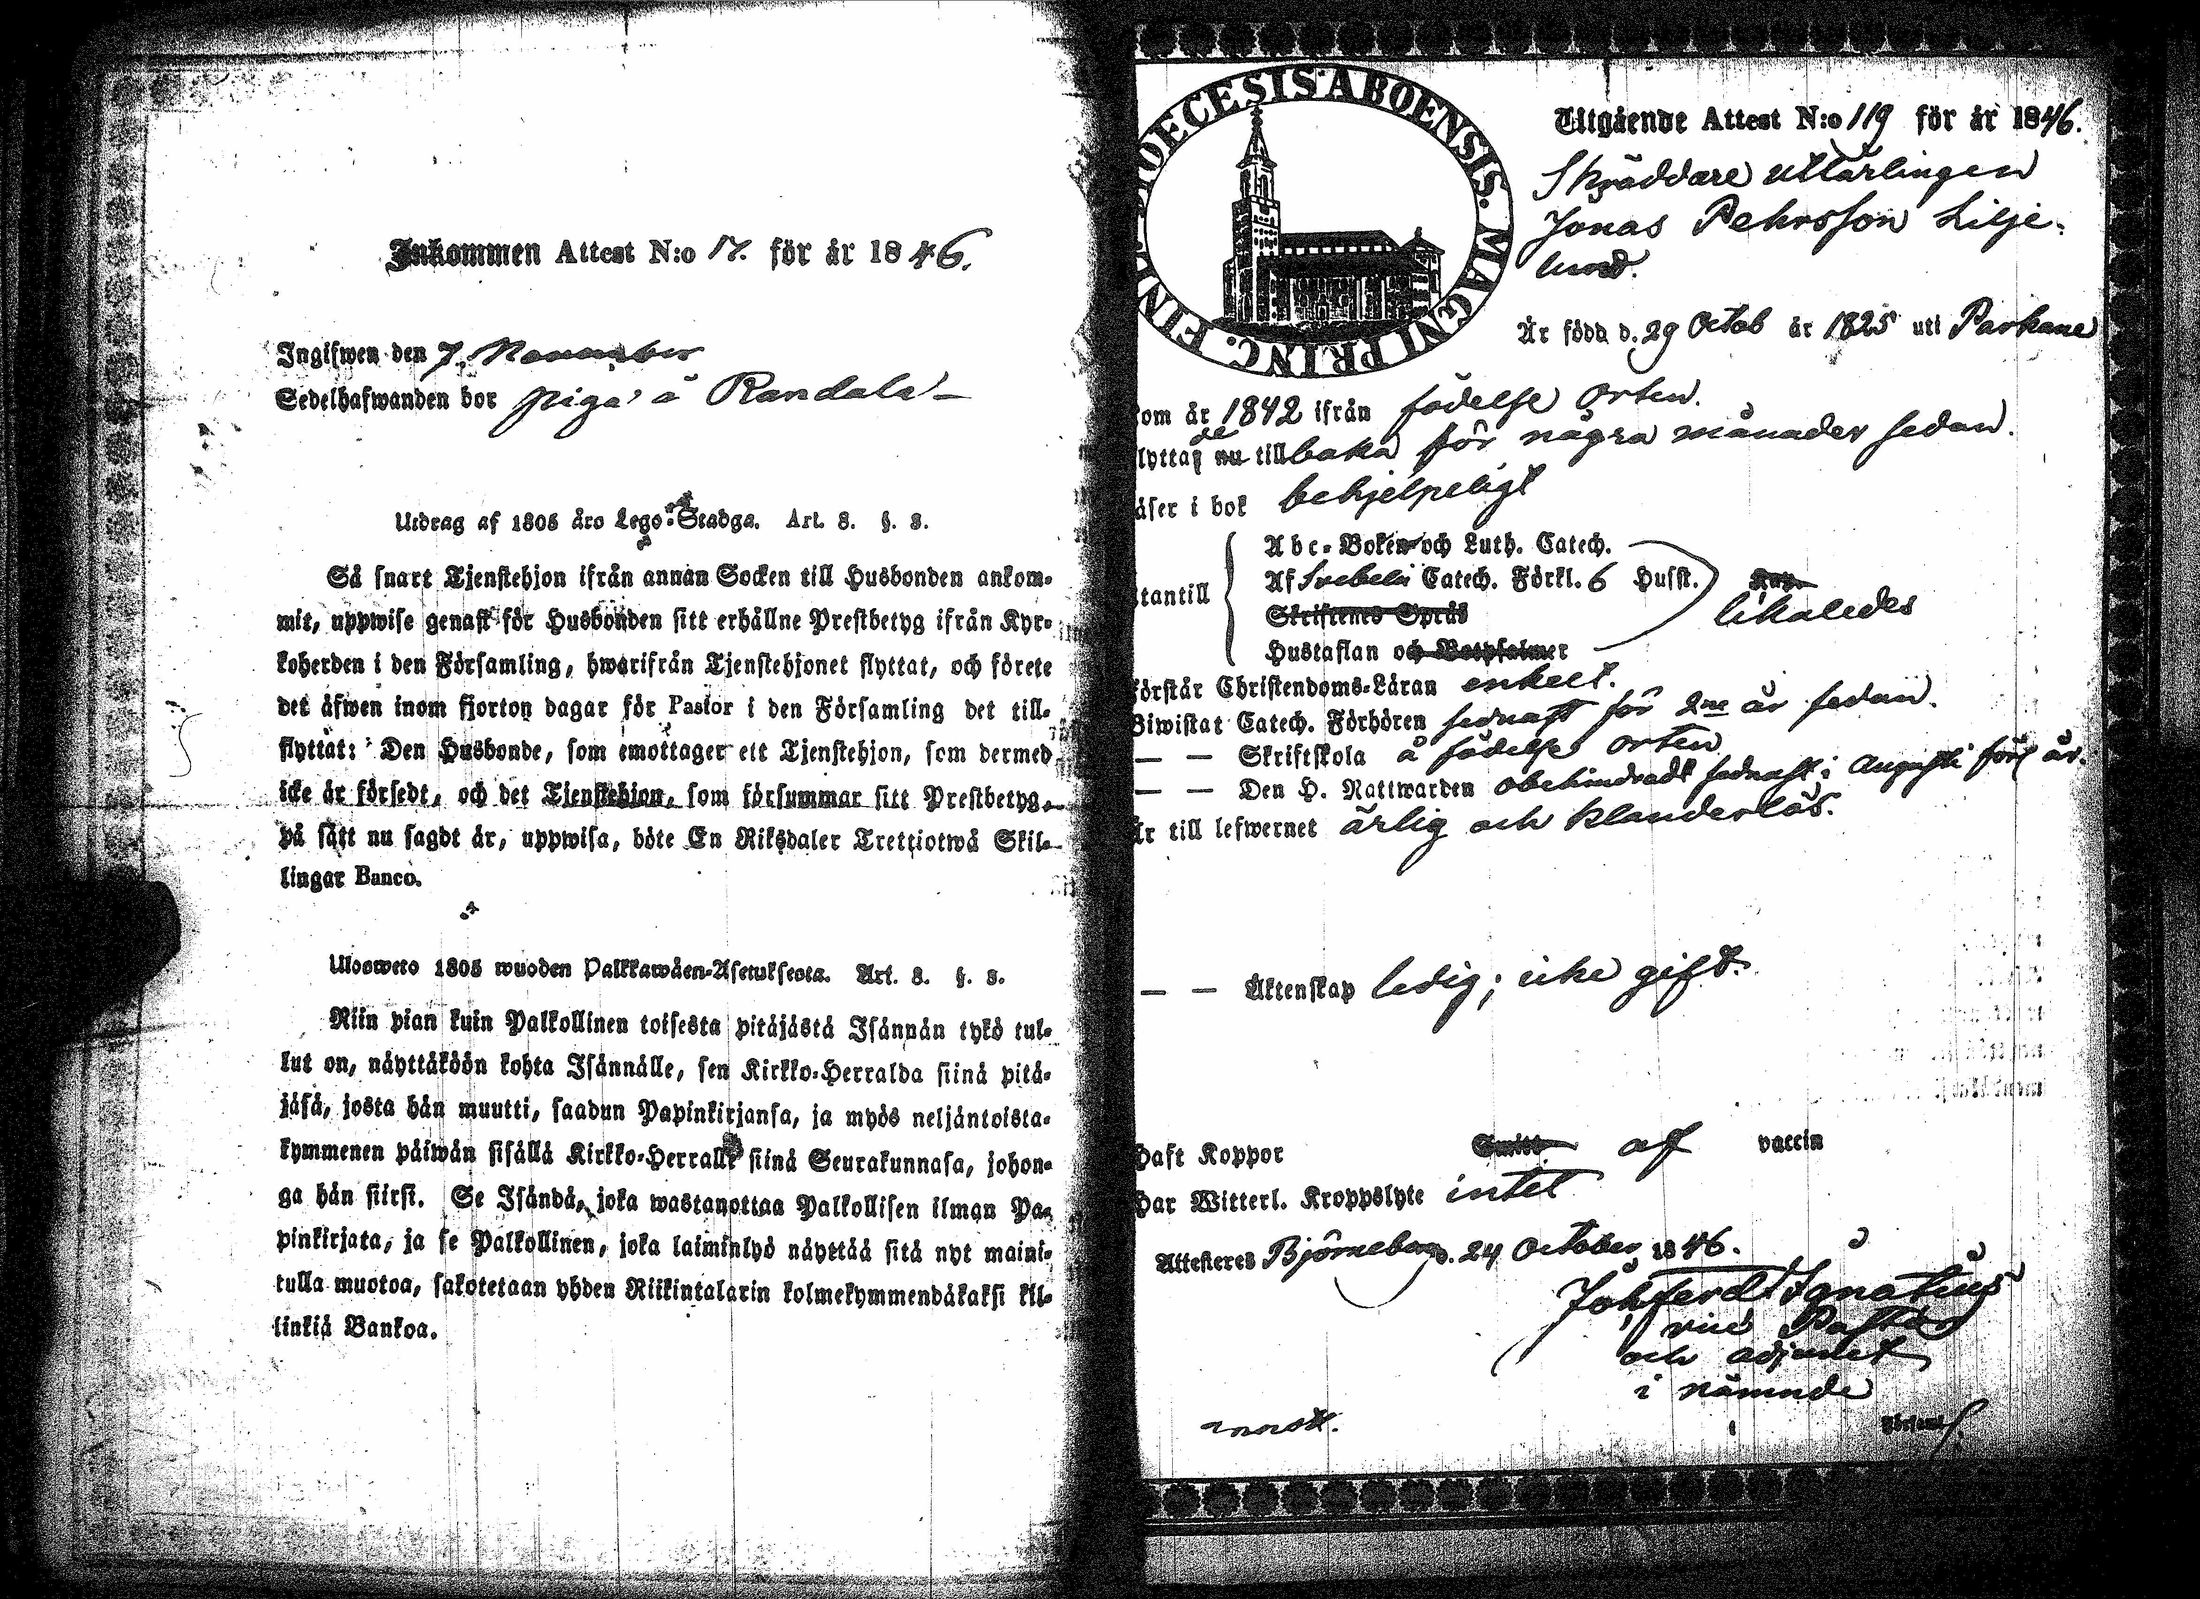 Inkommen Attest N:o 17. för år 1846.
Ingifwen den 7. November
Sedelhafwanden bor piga å Randala
Utdrag af 1805 års Lego-Stadga. Art. 8. §. 3.
Så snart Tjenstehjon ifrån annan Socken till Husbonden ankom-
mit, uppwise genast för Husbonden sitt erhållne Prestbetyg ifrån Kyr-
koherden i den Församling, hwarifrån Tjenstehjonet flyttat, och förete
det äfwen inom fjorton dagar för Pastor i den Församling det till-
flyttat: Den Husbonde, som emottager ett Tjenstehjon, som dermed
icke är försedt, och det Tjenstehjon, som försummar sitt Prestbetyg,
på sätt nu sagdt är, uppwisa, böte En Riksdaler Trettiotwå Skil-
lingar Banco.
Ulosweto 1805 wuoden Palkkawäen-Asetuksesta. Art. 8. §. 3.
Niin pian kuin Palkollinen toisesta pitäjästä Isännän tykö tul-
lut on, näyttäköön kohta Isännälle, sen Kirkko-Herralda siinä pitä-
jäsä, josta hän muutti, saadun Papinkirjansa, ja myös neljäntoista-
kymmenen päiwän sisällä Kirkko-Herralle siinä Seurakunnasa, johon-
ga hän siirsi. Se Isändä, joka wastanottaa Palkollisen ilman Pa-
pinkirjata, ja se Palkollinen, joka laiminlyö näyttää sitä nyt maini-
tulla muotoa, sakotetaan yhden Riikintalarin kolmekymmendäkaksi kil-
linkiä Bankoa.
DIOECESIS ABOENSIS. MAGNI PRINC. FINL.
Utgående Attest N:o 119 för år 1846.
Skräddare utlärlingen
Jonas Pehrsson Lilje-
lund.
Är född d. 29 Octob år 1825 uti Parkane
om år 1842 ifrån födelse orten.
de
lyttar nu tillbaka för några månader sedan.
äser i bok behjelpeligt
tantill
Abc-Boken och Luth. Catech.
Af Svebelii Catech. Förkl. 6 Husst.
Skriftenes Språk
Hustaflan och Botpsalmer
likaledes
örstår Christendoms-Läran enkelt.
Biwistat Catech. Förhören sednast för 2ne år sedan.
— — Skriftskola å födelse orten
— — Den H. Nattwarden obehindradt sednast i Augusti förl år.
Är till lefwernet ärlig och klanderlös.
— — Äktenskap ledig; icke gift.
Haft Koppor Smitt. af vaccin
Har Witterl. Kroppslyte intet
Attesteres Björneborg d. 24 October 1846.
Joh Ferd Ignatius
vice Pastor
och adjunct
i nämnde
Församl.